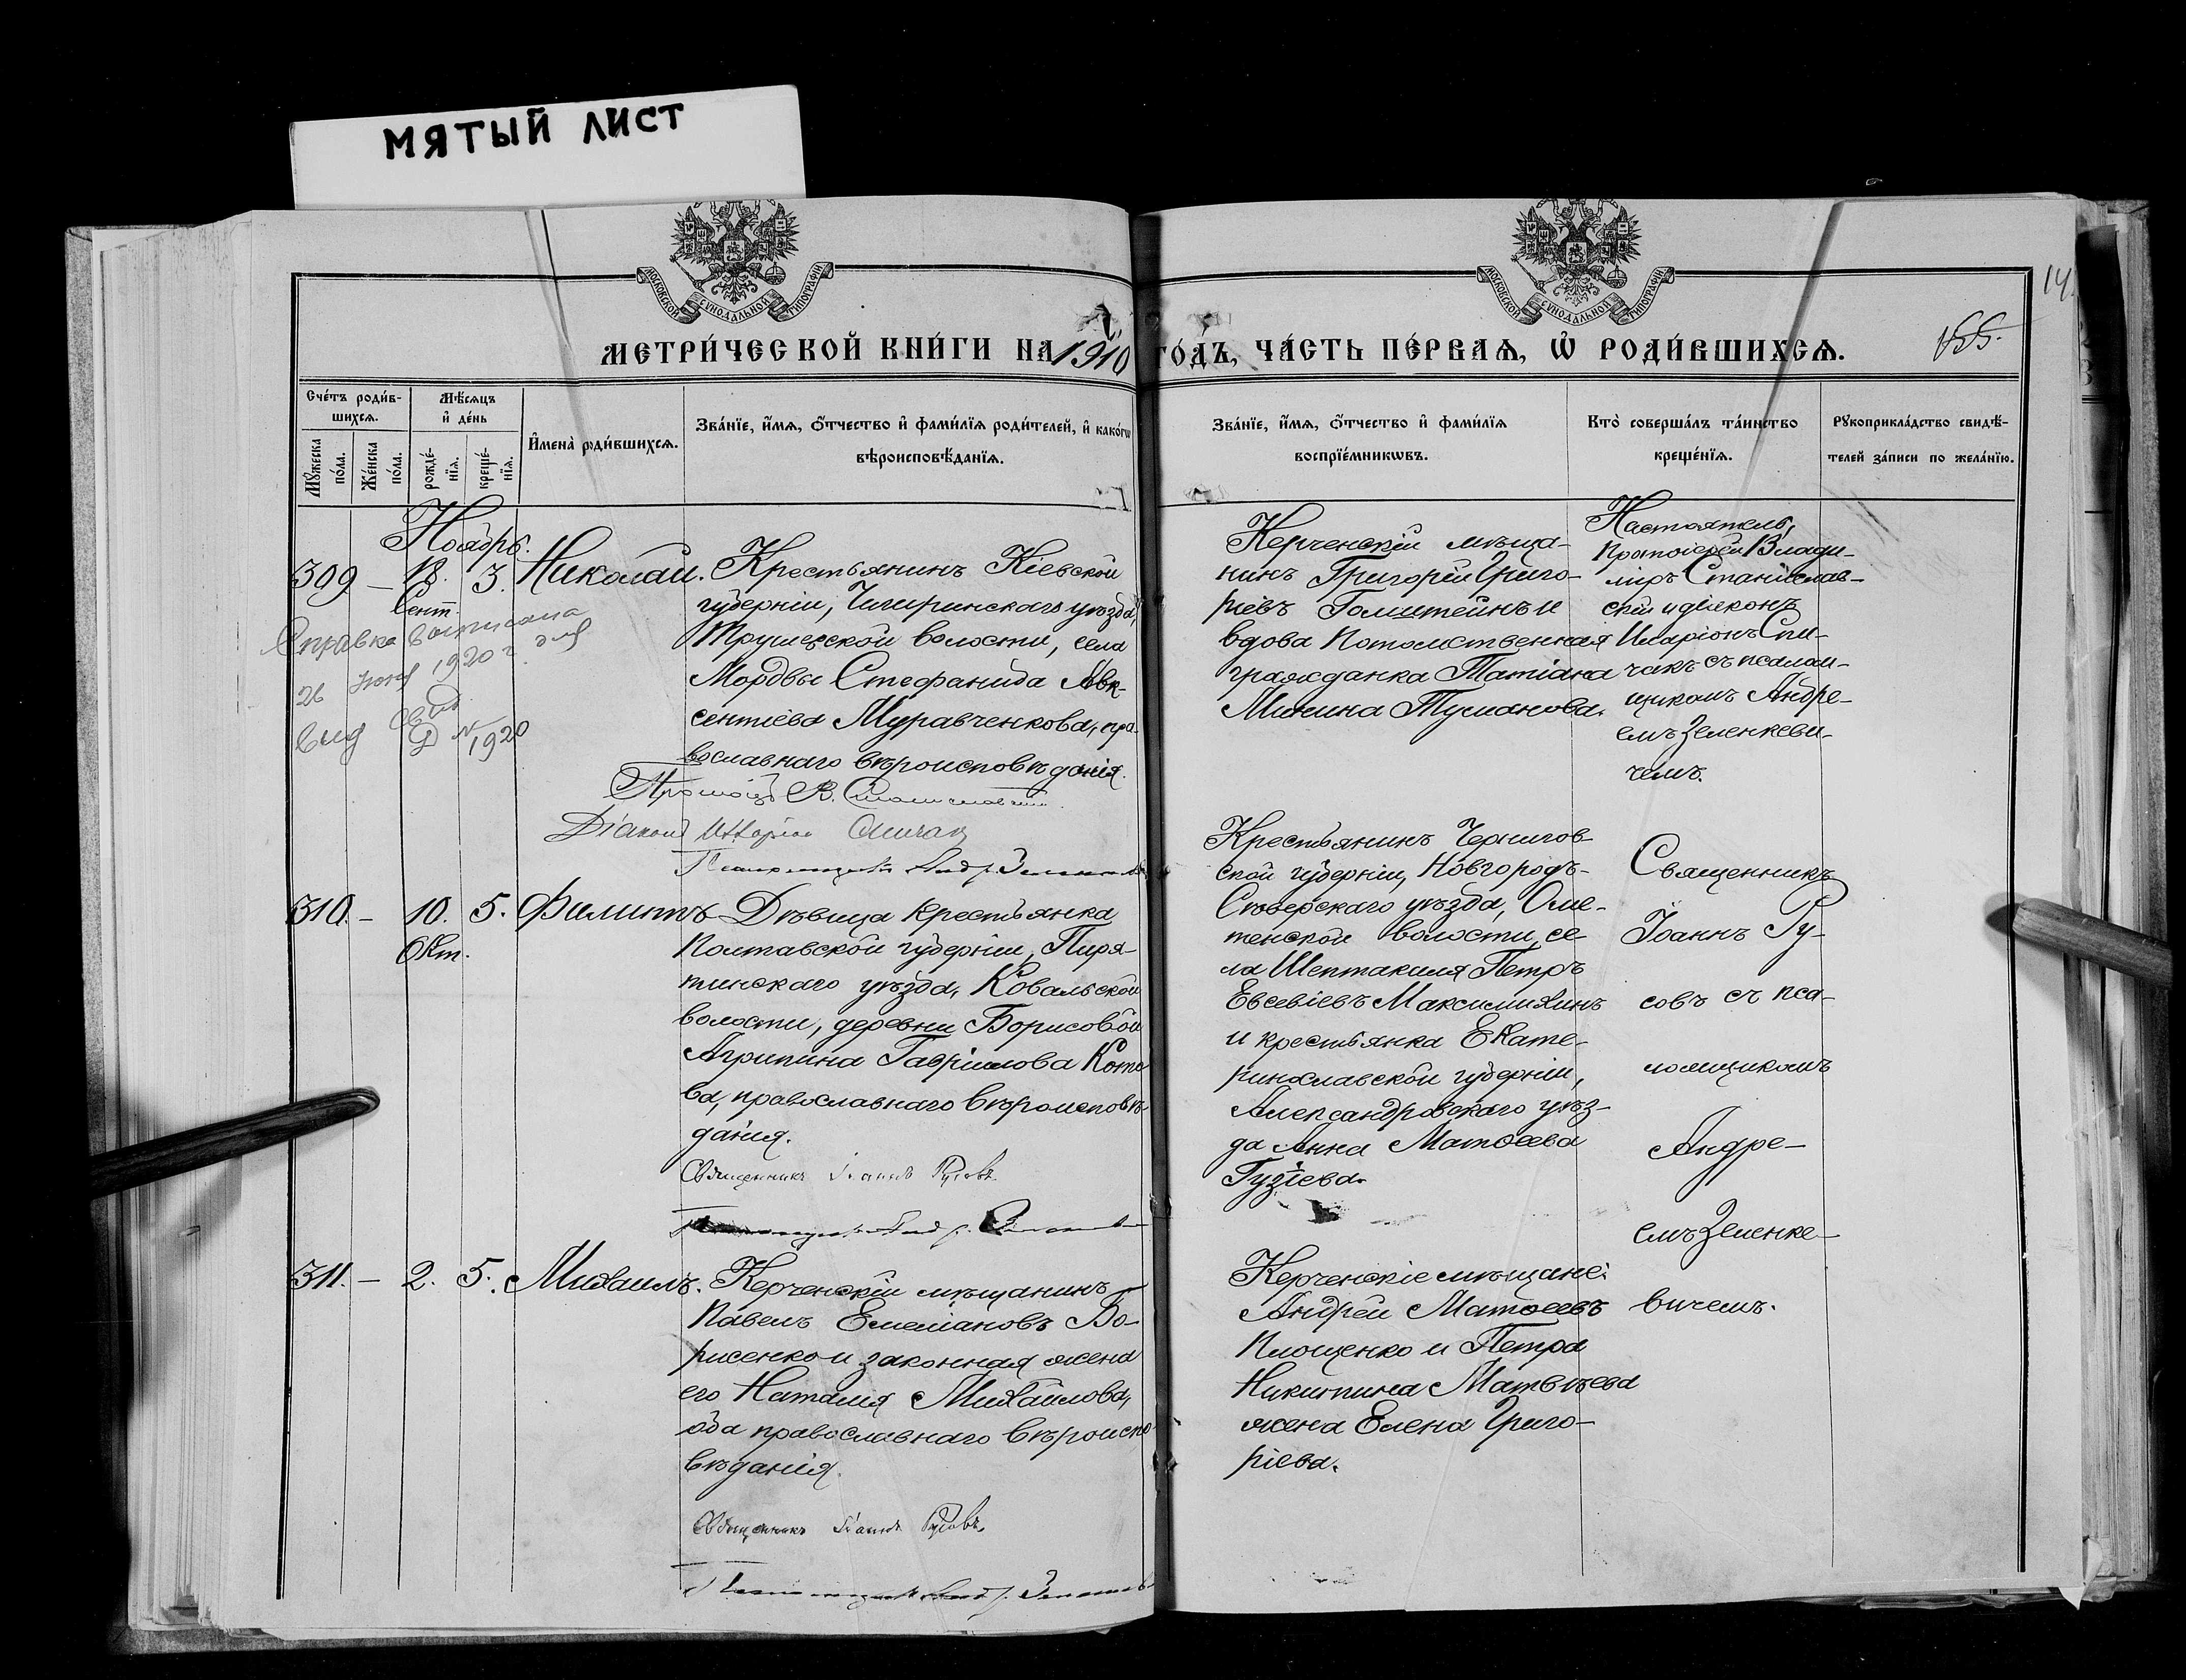 МЯТЫЙ ЛИСТ
МОСКОВСКОЙ СУНОДАЛЬНОЙ ТИПОГРАФІИ
МОСКОВСКОЙ СУНОДАЛЬНОЙ ТИПОГРАФІИ
14
МЕТРИ́ЧЕСКОЙ КНИ́ГИ НА 1910 ГО́ДЪ, ЧА́СТЬ ПЕ́РВАѦ, Ѡ҆ РОДИ́ВШИХСѦ.
155.
Сче́тъ роди́в-
шихсѧ.
Мꙋ́жеска по́ла.
Же́нска по́ла.
Мѣ́сѧцъ и҆ де́нь
рожде́-нїѧ.
креще́-нїѧ.
И҆мена̀ роди́вшихсѧ.
Зва́нїе, и҆́мѧ, ѻ҆́тчество и҆ фами́лїѧ роди́телей, и҆ како́гѡ
вѣроисповѣ́данїѧ.
Зва́нїе, и҆́мѧ, ѻ҆́тчество и҆ фами́лїѧ
воспрїе́мникѡвъ.
Кто̀ соверша́лъ та́инство
креще́нїѧ.
Рꙋкоприкла́дство свидѣ́-
телей за́писи по жела́нїю.
Ноябрь.
309 –
Сент.
3.
Николай.
Крестьянинъ Кіевской
губерніи, Чигиринскаго уѣзда,
волости, села
Мордвы Стефанида Авк-
сентіева Муравченкова, пра-
вославнаго вѣроисповѣданія.
Справка выписана
26 1920 г.
1920
Протоіер. В. Станиславскій
Діаконъ Иларіонъ Спичакъ
Псаломщикъ Андр. Зеленкев
Керченскій мѣща-
нинъ Григорій Григо-
ріевъ Гольштейнъ и
вдова потомственная
гражданка Татіана
Минина Туманова.
Настоятель,
Протоіерей Влади-
міръ Станіслав-
скій и діаконъ
Иларіонъ Спи-
чакъ съ псалом-
щикомъ Андре-
емъ Зеленкеви-
чемъ.
310. –
10.
Окт.
5.
Филиппъ
Дѣвица крестьянка
Полтавской губерніи, Пиря-
тинскаго уѣзда, Ковальской
волости, деревни Борисовой
Агрипина Гавріилова Кото
ва, православнаго вѣроисповѣ-
данія.
Священникъ Іоаннъ Русовъ.
Псаломщикъ Андр. Зеленкев
Крестьянинъ Чернигов-
ской губерніи, Новгородъ-
Сѣверскаго уѣзда,
волости, се-
ла Шептакиля Петръ
Евсевіевъ Максимихинъ
и крестьянка Екате-
ринославской губерніи,
Александровскаго уѣз-
да Анна Матѳеева
Гузіева.
Священникъ
Іоаннъ Ру-
совъ съ пса-
ломщикомъ
Андре-
емъ Зеленке-
вичемъ.
311. –
2.
5.
Михаилъ.
Керченскій мѣщанинъ
Павелъ Емеліановъ Бо-
рисенко и законная жена
его Наталія Михайлова,
оба православнаго вѣроиспо-
вѣданія.
Священникъ Іоаннъ Русовъ.
Псаломщикъ Андр. Зеленкев
Керченскіе мѣщане:
Андрей Матѳеевъ
Площенко и Петра
Никитина Матвѣева
жена Елена Григо-
ріева.